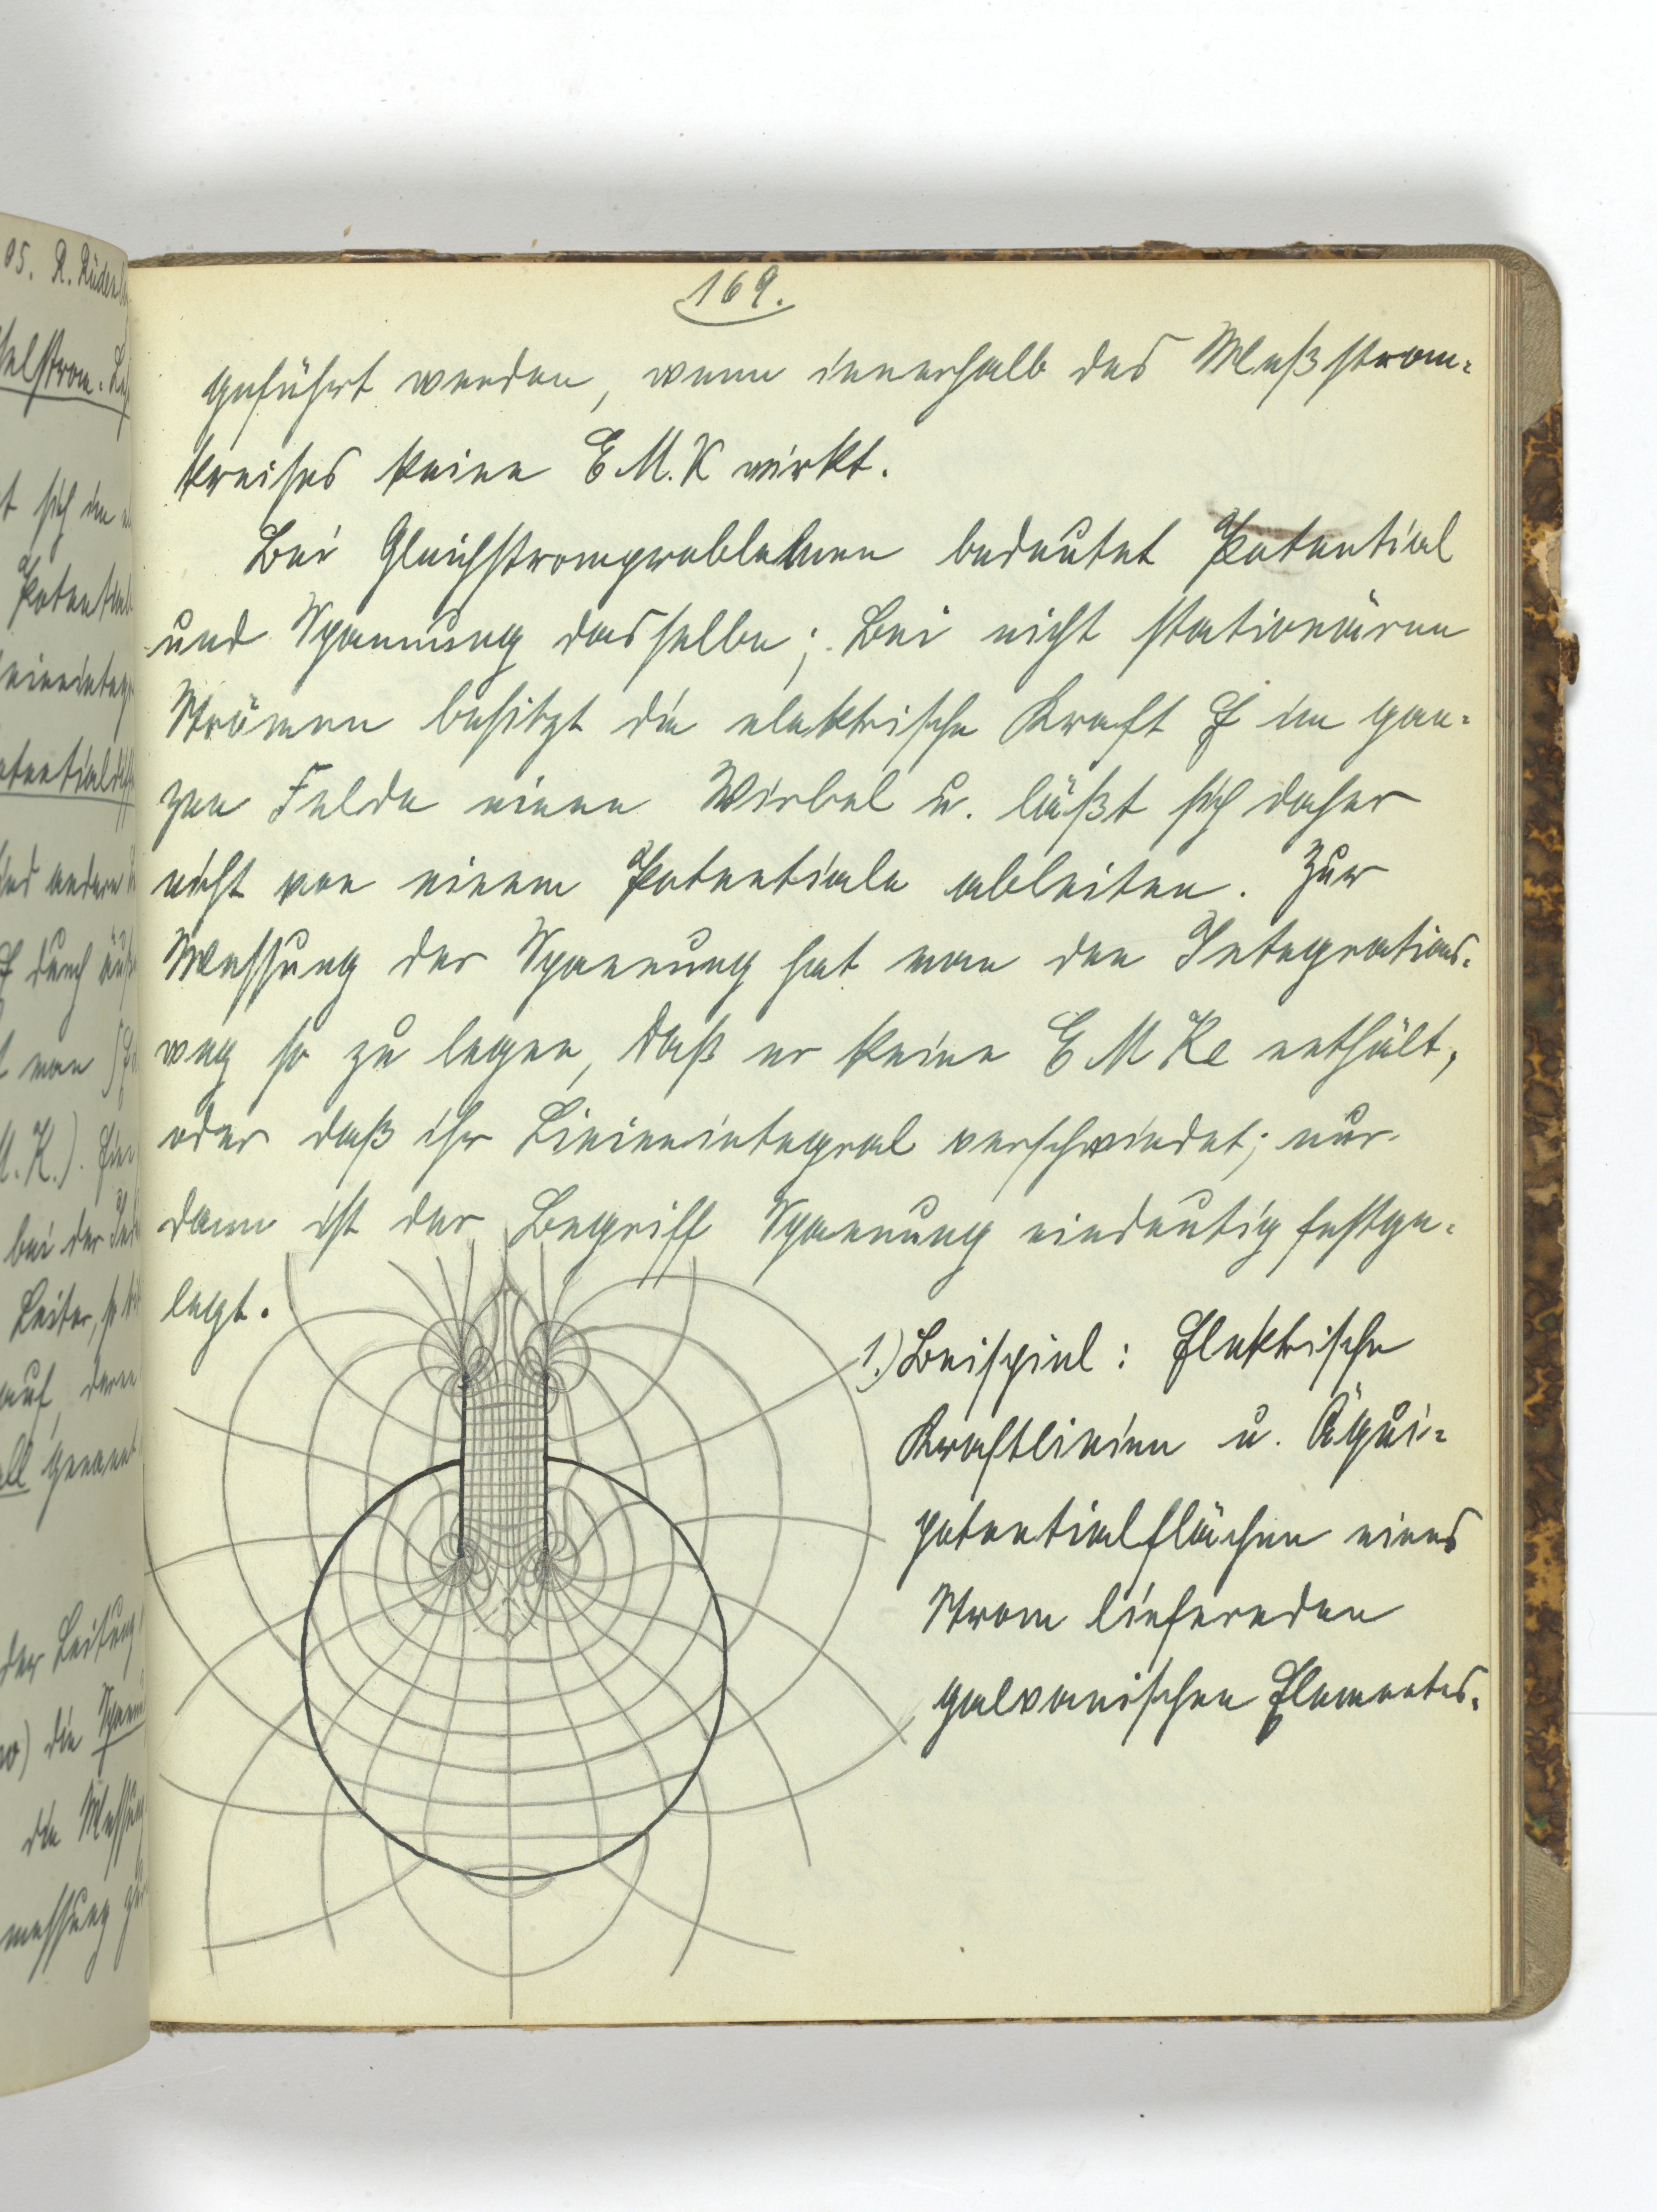 05. R. Rüdenb
selstrom.
t sich im
Potential
einenteg
otentialdiff
und andern
E durch
t man
M.K.). Für
bei der
Leiter, so
auf, deren
all genannt
der Leitung
die Spann
die Messung
messung
169.
geführt werden, wenn innerhalb des Meßstrom-
kreises keine E.M.K wirkt.
Bei Gleichstromproblemen bedeutet Potential
und Spannung dasselbe; Bei nicht stationären
Strömen besitzt die elektrische Kraft E im gan-
zen Felde einen Wirbel u. läßt sich daher
nicht von einem Potentiale ableiten. Zur
Messung der Spannung hat man den Integrations-
weg so zu legen, daß er keine E M Ke enthält,
oder daß ihr Linienintegral verschwindet; nur
dann ist der Begriff Spannung eindeutig festge-
legt.
1.) Beispiel: Elektrische
Kraftlinien u. Äqui-
potentialflächen eines
Strom liefernden
galvanischen Elementes.